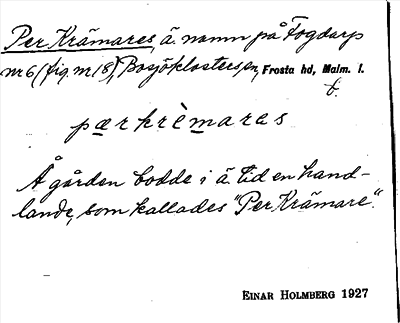 Per Krämares, ä. namn på Fogdarp
nr 6 (fig. nr 18), Bosjöklosters sn, Frosta hd, Malm. l.
t.
pærkrèmares
Å gården bodde i ä. tid en hand-
lande, som kallades "Per Krämare".
EINAR HOLMBERG 1927